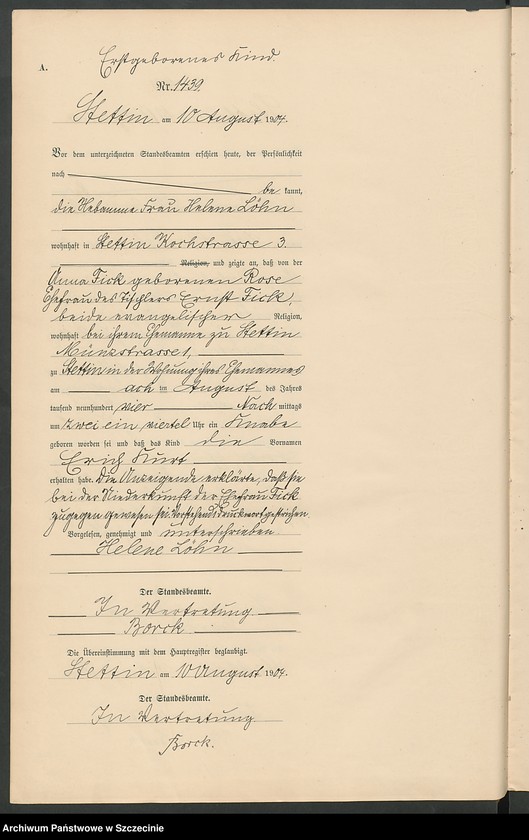 Erstgeborenes Kind.
A.
Nr. 1439.
Stettin am 10 August 1904.
Vor dem unterzeichneten Standesbeamten erschien heute, der Persönlichkeit
nach
be kannt,
die Hebamme Frau Helene Löhn
wohnhaft in Stettin Kochstrasse 3.
Religion, und zeigte an, daß von der
Anna Fick geborenen Rose
Ehefrau des Tischlers Ernst Fick,
beide evangelischer Religion,
wohnhaft bei ihrem Ehemanne zu Stettin
Münzstrasse 1,
zu Stettin in der Wohnung ihres Ehemannes
am acht en August des Jahres
tausend neunhundert vier Nach mittags
um zwei ein viertel Uhr ein Knabe
geboren worden sei und daß das Kind die Vornamen
Erich Kurt
erhalten habe. Die Anzeigende erklärte, daß sie
bei der Niederkunft der Ehefrau Fick
zugegen gewesen sei. Vorstehend 1 Druckwort gestrichen.
Vorgelesen, genehmigt und unterschrieben
Helene Löhn
Der Standesbeamte.
In Vertretung
Borck
Die Übereinstimmung mit dem Hauptregister beglaubigt.
Stettin am 10 August 1904.
Der Standesbeamte.
In Vertretung
Borck.
Archiwum Państwowe w Szczecinie